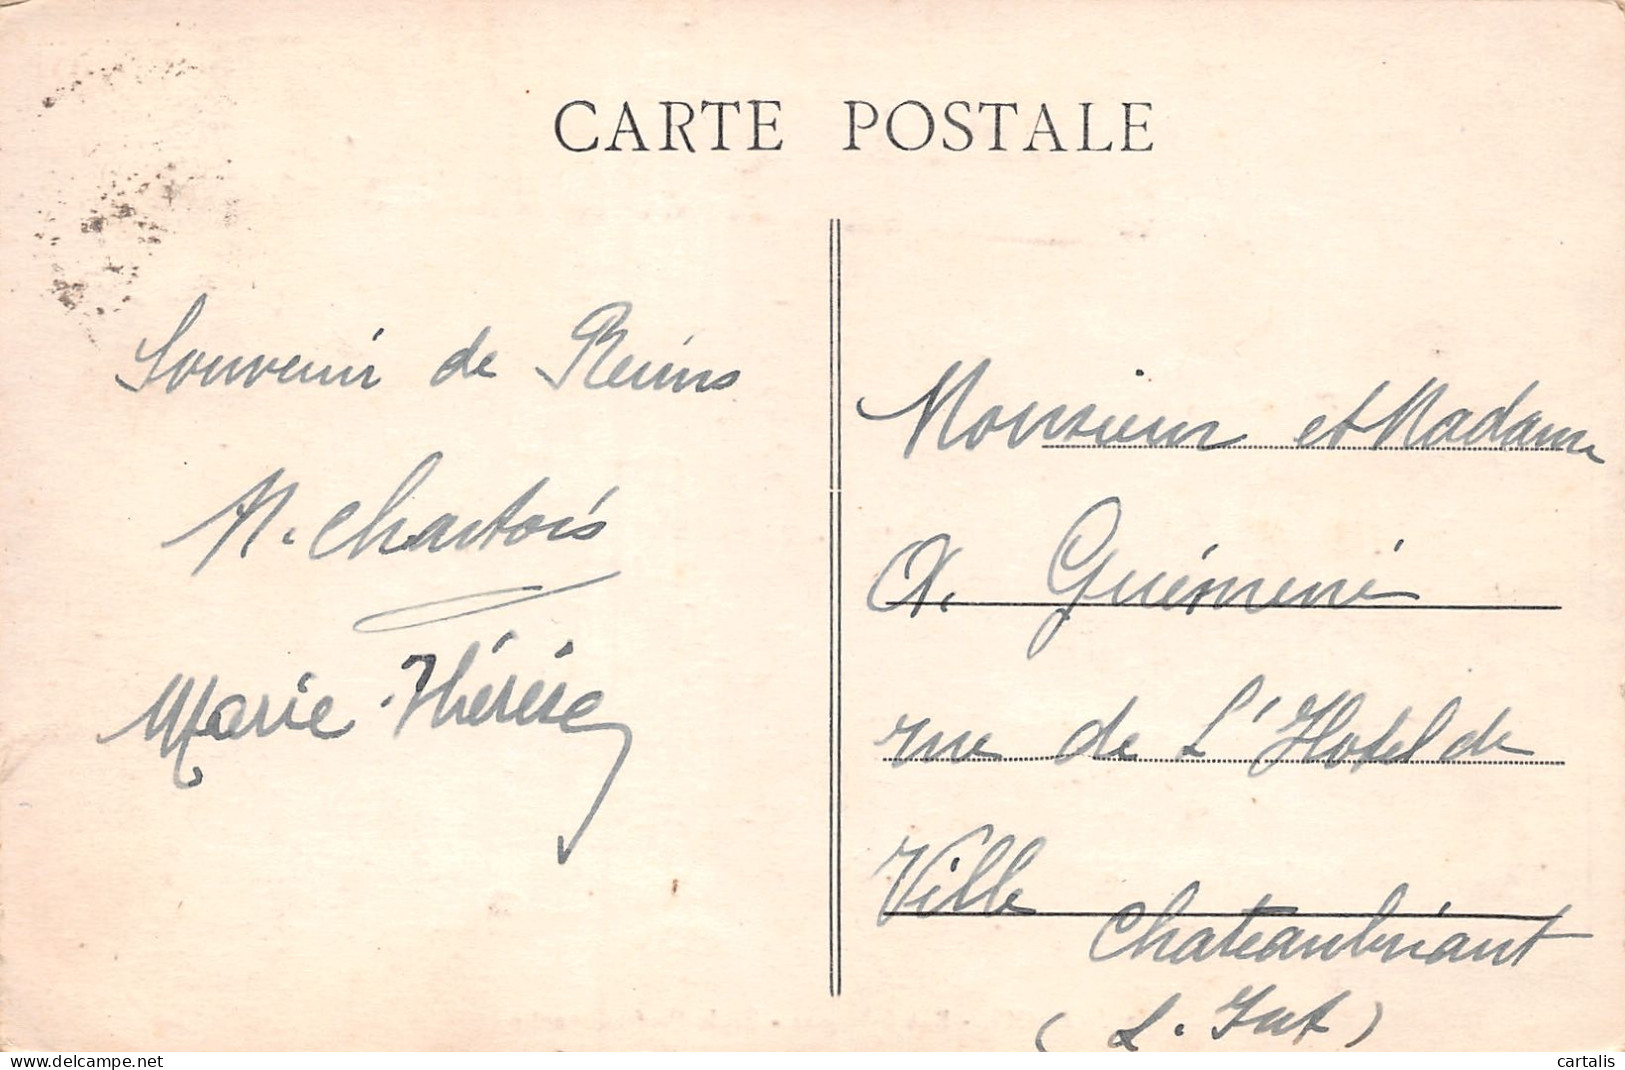 CARTE POSTALE
Souvenir de Reims
N. Chartois
Marie-Thérèse
Monsieur et Madame
A. Guémené
rue de L'Hotel de
Ville
Chateaubriant
(L. Inf)
www.delcampe.net
cartalis